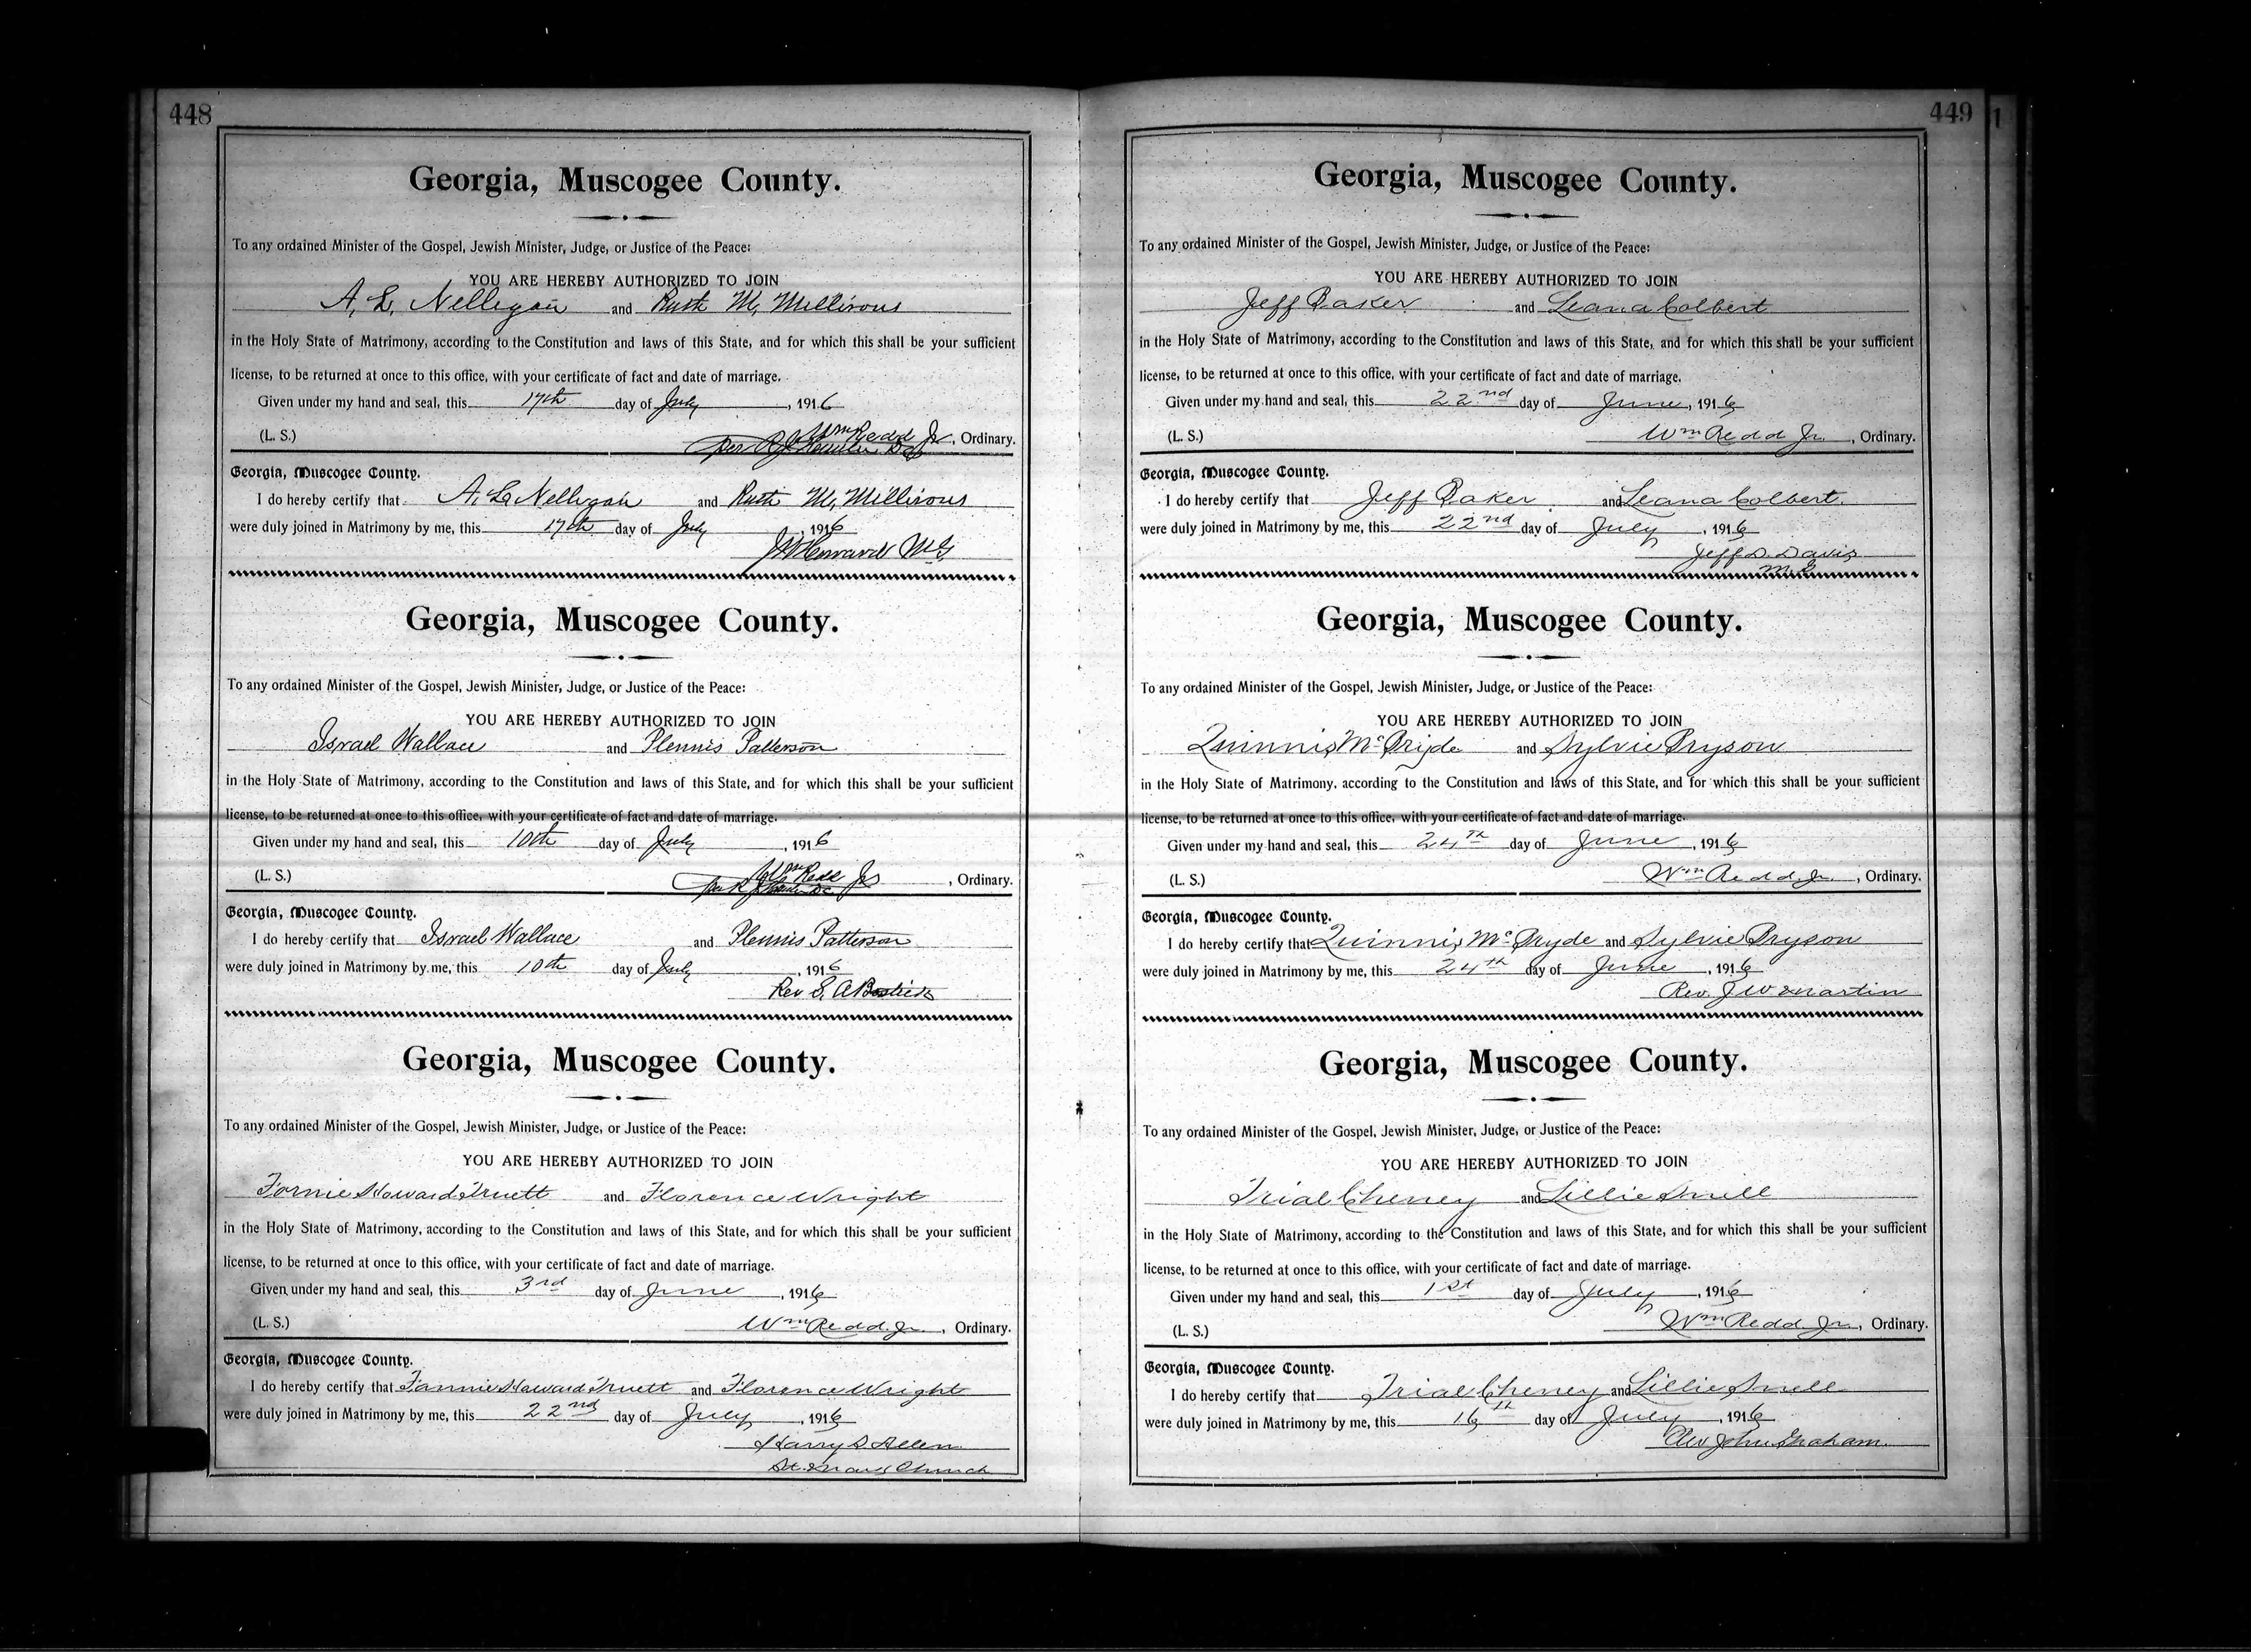 448
Georgia, Muscogee County.
To any ordained Minister of the Gospel, Jewish Minister, Judge, or Justice of the Peace:
YOU ARE HEREBY AUTHORIZED TO JOIN
A. L. Nelligan and Ruth M. Millirous
in the Holy State of Matrimony, according to the Constitution and laws of this State, and for which this shall be your sufficient
license, to be returned at once to this office, with your certificate of fact and date of marriage.
Given under my hand and seal, this 17th day of July, 1916
(L. S.) Wm Redd Jr, Ordinary.
Per
Georgia, Muscogee County.
I do hereby certify that A. L. Nelligan and Ruth M. Millirous
were duly joined in Matrimony by me, this 17th day of July, 1916
J W Howard MG
Georgia, Muscogee County.
To any ordained Minister of the Gospel, Jewish Minister, Judge, or Justice of the Peace:
YOU ARE HEREBY AUTHORIZED TO JOIN
Israel Wallace and Plennis Patterson
in the Holy State of Matrimony, according to the Constitution and laws of this State, and for which this shall be your sufficient
license, to be returned at once to this office, with your certificate of fact and date of marriage.
Given under my hand and seal, this 10th day of July, 1916
(L. S.) Wm Redd Jr, Ordinary.
Georgia, Muscogee County.
I do hereby certify that Israel Wallace and Plennis Patterson
were duly joined in Matrimony by me, this 10th day of July, 1916
Rev S. A Bostick
Georgia, Muscogee County.
To any ordained Minister of the Gospel, Jewish Minister, Judge, or Justice of the Peace:
YOU ARE HEREBY AUTHORIZED TO JOIN
Fornie Howard Truett and Florence Wright
in the Holy State of Matrimony, according to the Constitution and laws of this State, and for which this shall be your sufficient
license, to be returned at once to this office, with your certificate of fact and date of marriage.
Given under my hand and seal, this 3rd day of June, 1916
(L. S.) Wm Redd Jr, Ordinary.
Georgia, Muscogee County.
I do hereby certify that Fannie Howard Truett and Florence Wright
were duly joined in Matrimony by me, this 22nd day of July, 1916
Harry S Allen
Church
449
1
Georgia, Muscogee County.
To any ordained Minister of the Gospel, Jewish Minister, Judge, or Justice of the Peace:
YOU ARE HEREBY AUTHORIZED TO JOIN
Jeff Baker and Leana Colbert
in the Holy State of Matrimony, according to the Constitution and laws of this State, and for which this shall be your sufficient
license, to be returned at once to this office, with your certificate of fact and date of marriage.
Given under my hand and seal, this 22nd day of June, 1916
(L. S.) Wm Redd Jr., Ordinary.
Georgia, Muscogee County.
I do hereby certify that Jeff Baker and Leana Colbert
were duly joined in Matrimony by me, this 22nd day of July, 1916
Jeff D. Davis
M. G.
Georgia, Muscogee County.
To any ordained Minister of the Gospel, Jewish Minister, Judge, or Justice of the Peace:
YOU ARE HEREBY AUTHORIZED TO JOIN
Quinnis McBryde and Sylvie Bryson
in the Holy State of Matrimony, according to the Constitution and laws of this State, and for which this shall be your sufficient
license, to be returned at once to this office, with your certificate of fact and date of marriage.
Given under my hand and seal, this 24th day of June, 1916
(L. S.) Wm Redd Jr., Ordinary.
Georgia, Muscogee County.
I do hereby certify that Quinnis McBryde and Sylvie Bryson
were duly joined in Matrimony by me, this 24th day of June, 1916
Rev. J W Martin
Georgia, Muscogee County.
To any ordained Minister of the Gospel, Jewish Minister, Judge, or Justice of the Peace:
YOU ARE HEREBY AUTHORIZED TO JOIN
Trial Cheney and Lillie Snell
in the Holy State of Matrimony, according to the Constitution and laws of this State, and for which this shall be your sufficient
license, to be returned at once to this office, with your certificate of fact and date of marriage.
Given under my hand and seal, this 1st day of July, 1916
(L. S.) Wm Redd Jr., Ordinary.
Georgia, Muscogee County.
I do hereby certify that Trial Cheney and Lillie Snell
were duly joined in Matrimony by me, this 16th day of July, 1916
Rev John Graham